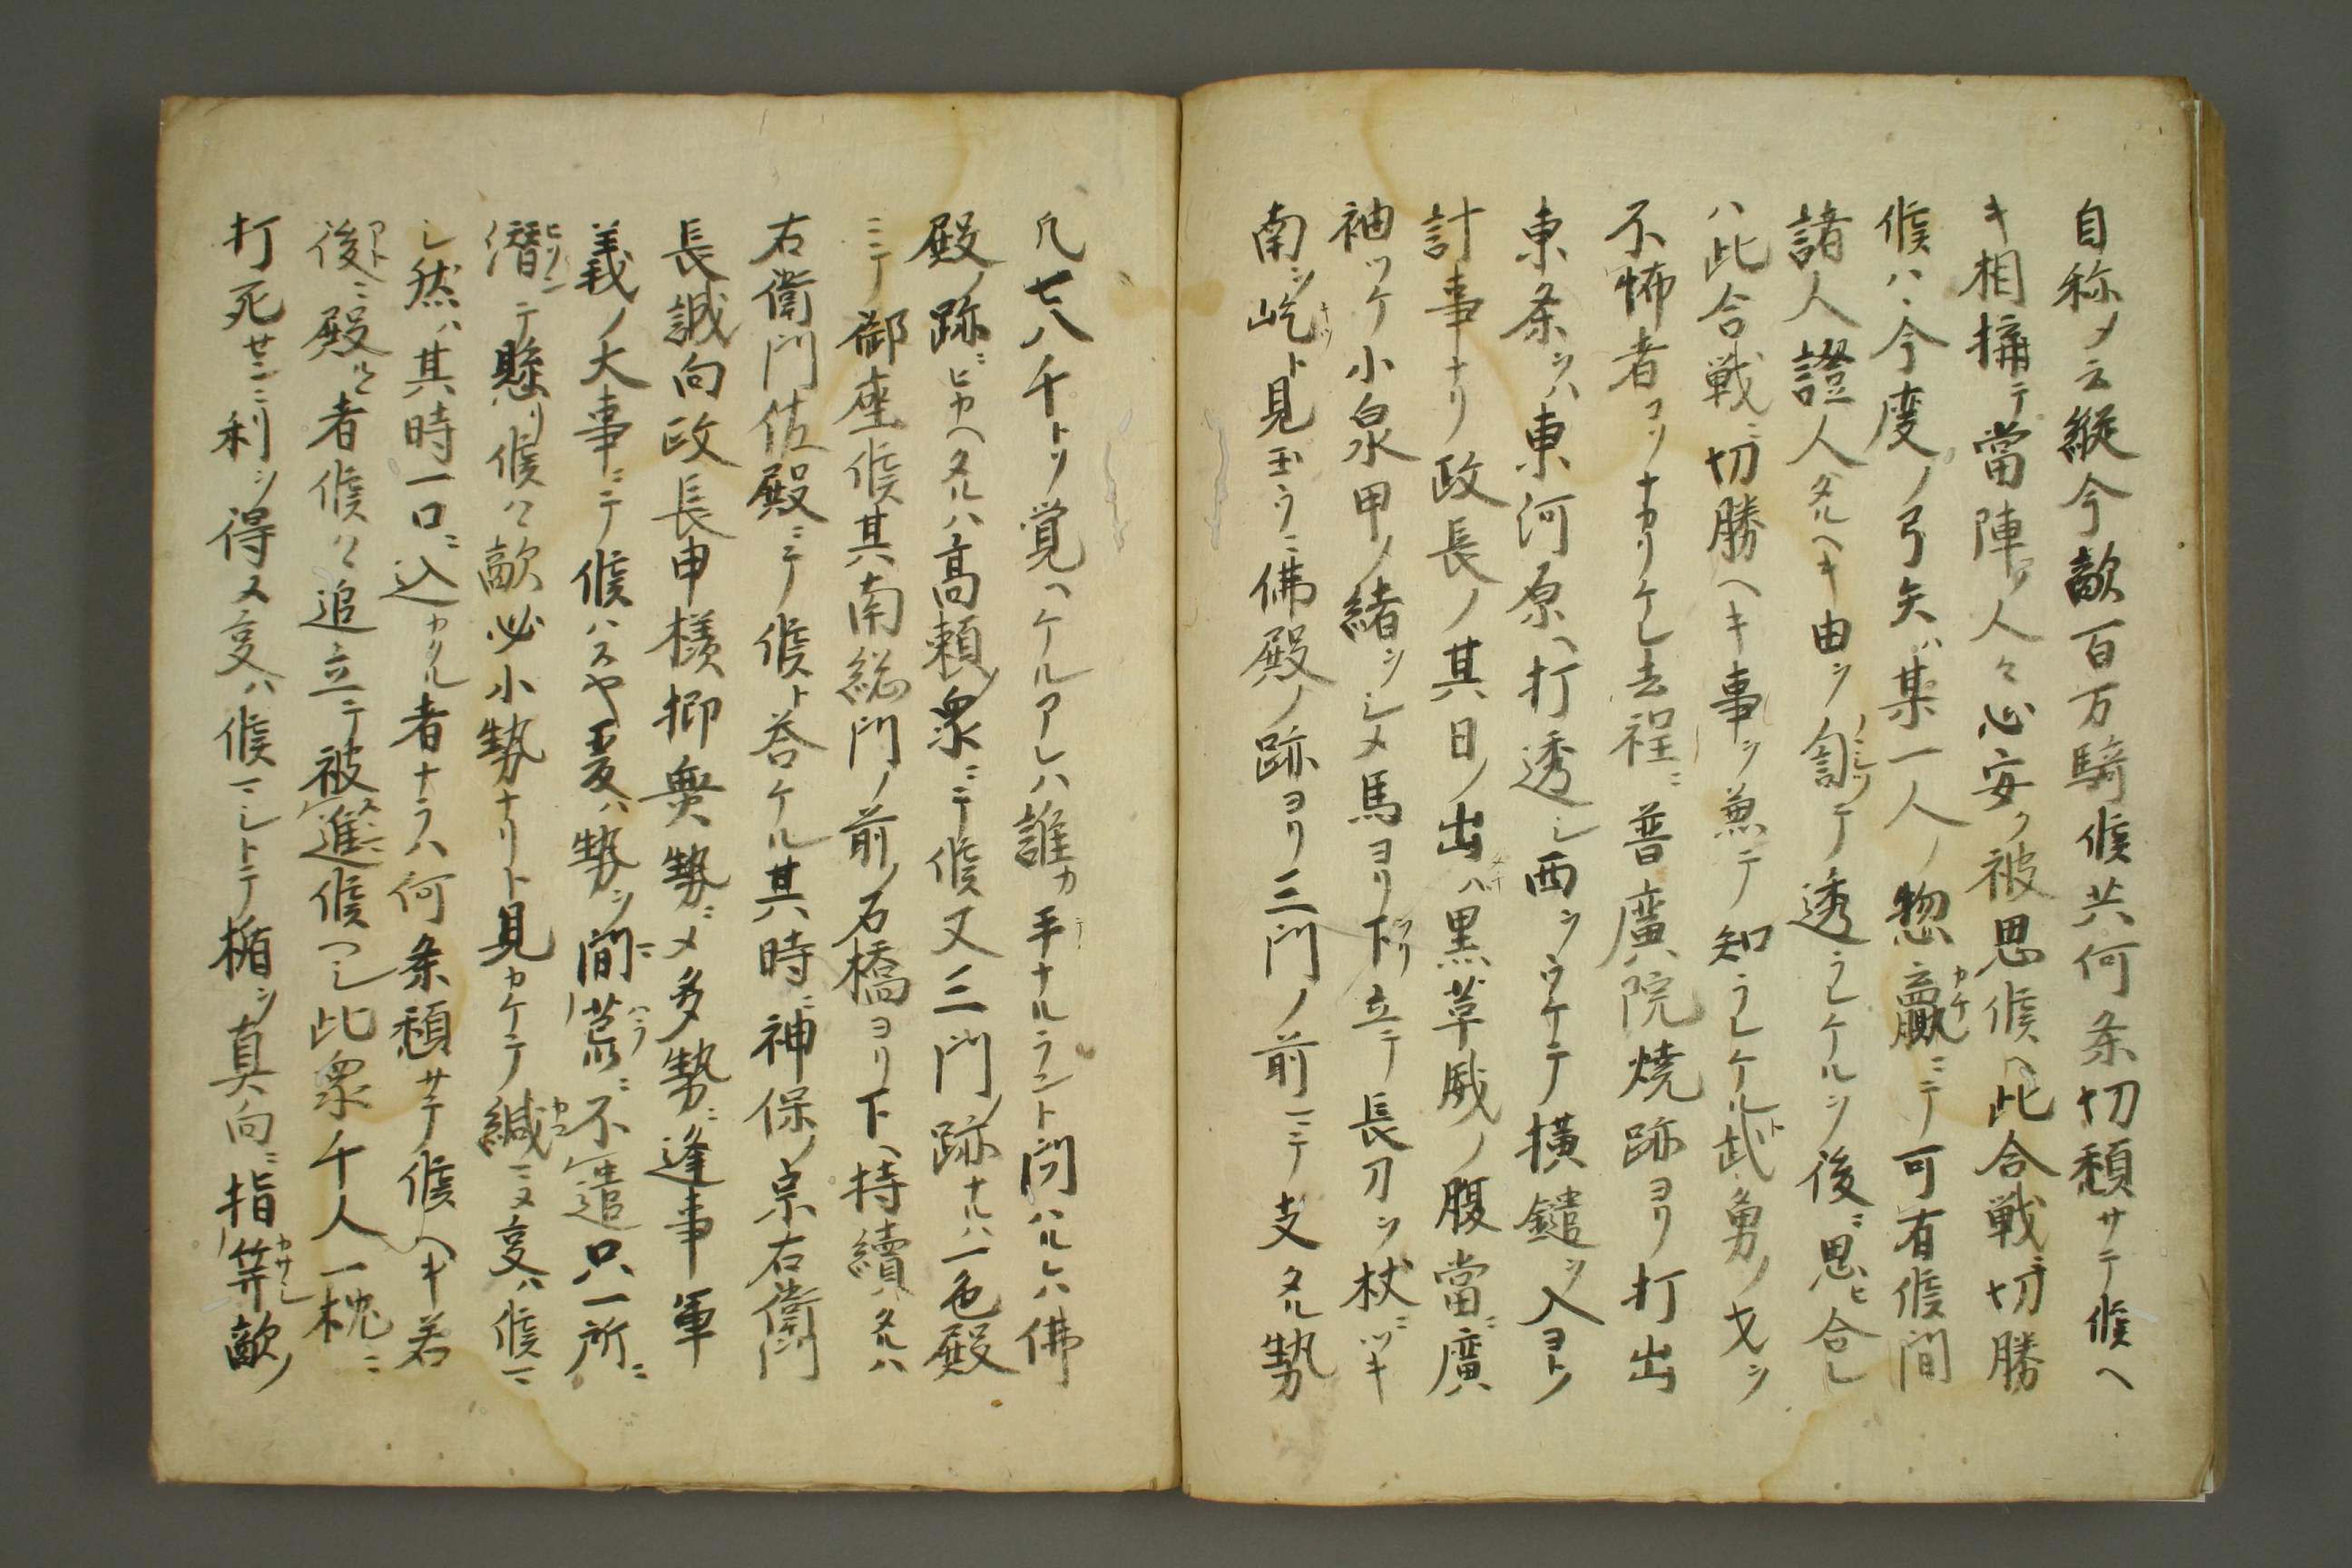 自称メ云縦今敵百万騎候共何条切頽サテ候ヘ
キ相搆テ當陣ノ人々心安ク被思候ヘ此合戦ニ切勝
候ハヽ今度ノ弓矢ハ某一人ノ惣贏ニテ可有候間
諸人證人タルヘキ由ヲ訇テ透ラレケルヲ後ニ思ヒ合レ
ハ此合戦ニ切勝ヘキ事ヲ兼テ知ラレケル武勇ノ才ヲ
不怖者コソナカリケレ去程ニ普廣院焼跡ヨリ打出
東条ヲハ東河原ヘ打透シ西ヲウケテ横鑓ヲ入ヨトノ
計事ナリ政長ノ其日ノ出ハ黒草威ノ腹當ニ廣
袖ツケ小泉甲ノ緒ヲシメ馬ヨリ下立テ長刀ヲ杖ニツキ
南ヲ屹ト見玉ウニ佛殿ノ跡ヨリ三門ノ前ニテ支タル勢
凡七八千トソ覚ヘケルアレハ誰カ手ナルラント問ハルレハ佛
殿ノ跡ニヒカヘタルハ高頼衆ニテ候又三門ノ跡ナルハ一色殿
ニテ御座候其南総門ノ前ノ石橋ヨリ下ヘ持續タルハ
右衛門佐殿ニテ候ト答ケル其時ニ神保ノ京右衛門
長誠向政長申様抑無勢ニメ多勢ニ逢事軍
義ノ大事ニテ候ハスヤ爰ハ勢ヲ間荒ニ不遣只一所ニ
潜テ懸リ候ハヽ敵必小勢ナリト見カケテ緘ニヌ爰ハ候マ
シ然ハ其時一口ニ込カクル者ナラハ何条頽サテ候ヘキ若
後ニ殿ル者候ハヽ追立テ被進候ヘシ此衆千人一槐ニ
打死センニ利ヲ得ヌ爰ハ候マシトテ楯ヲ真向ニ指笄敵ノ